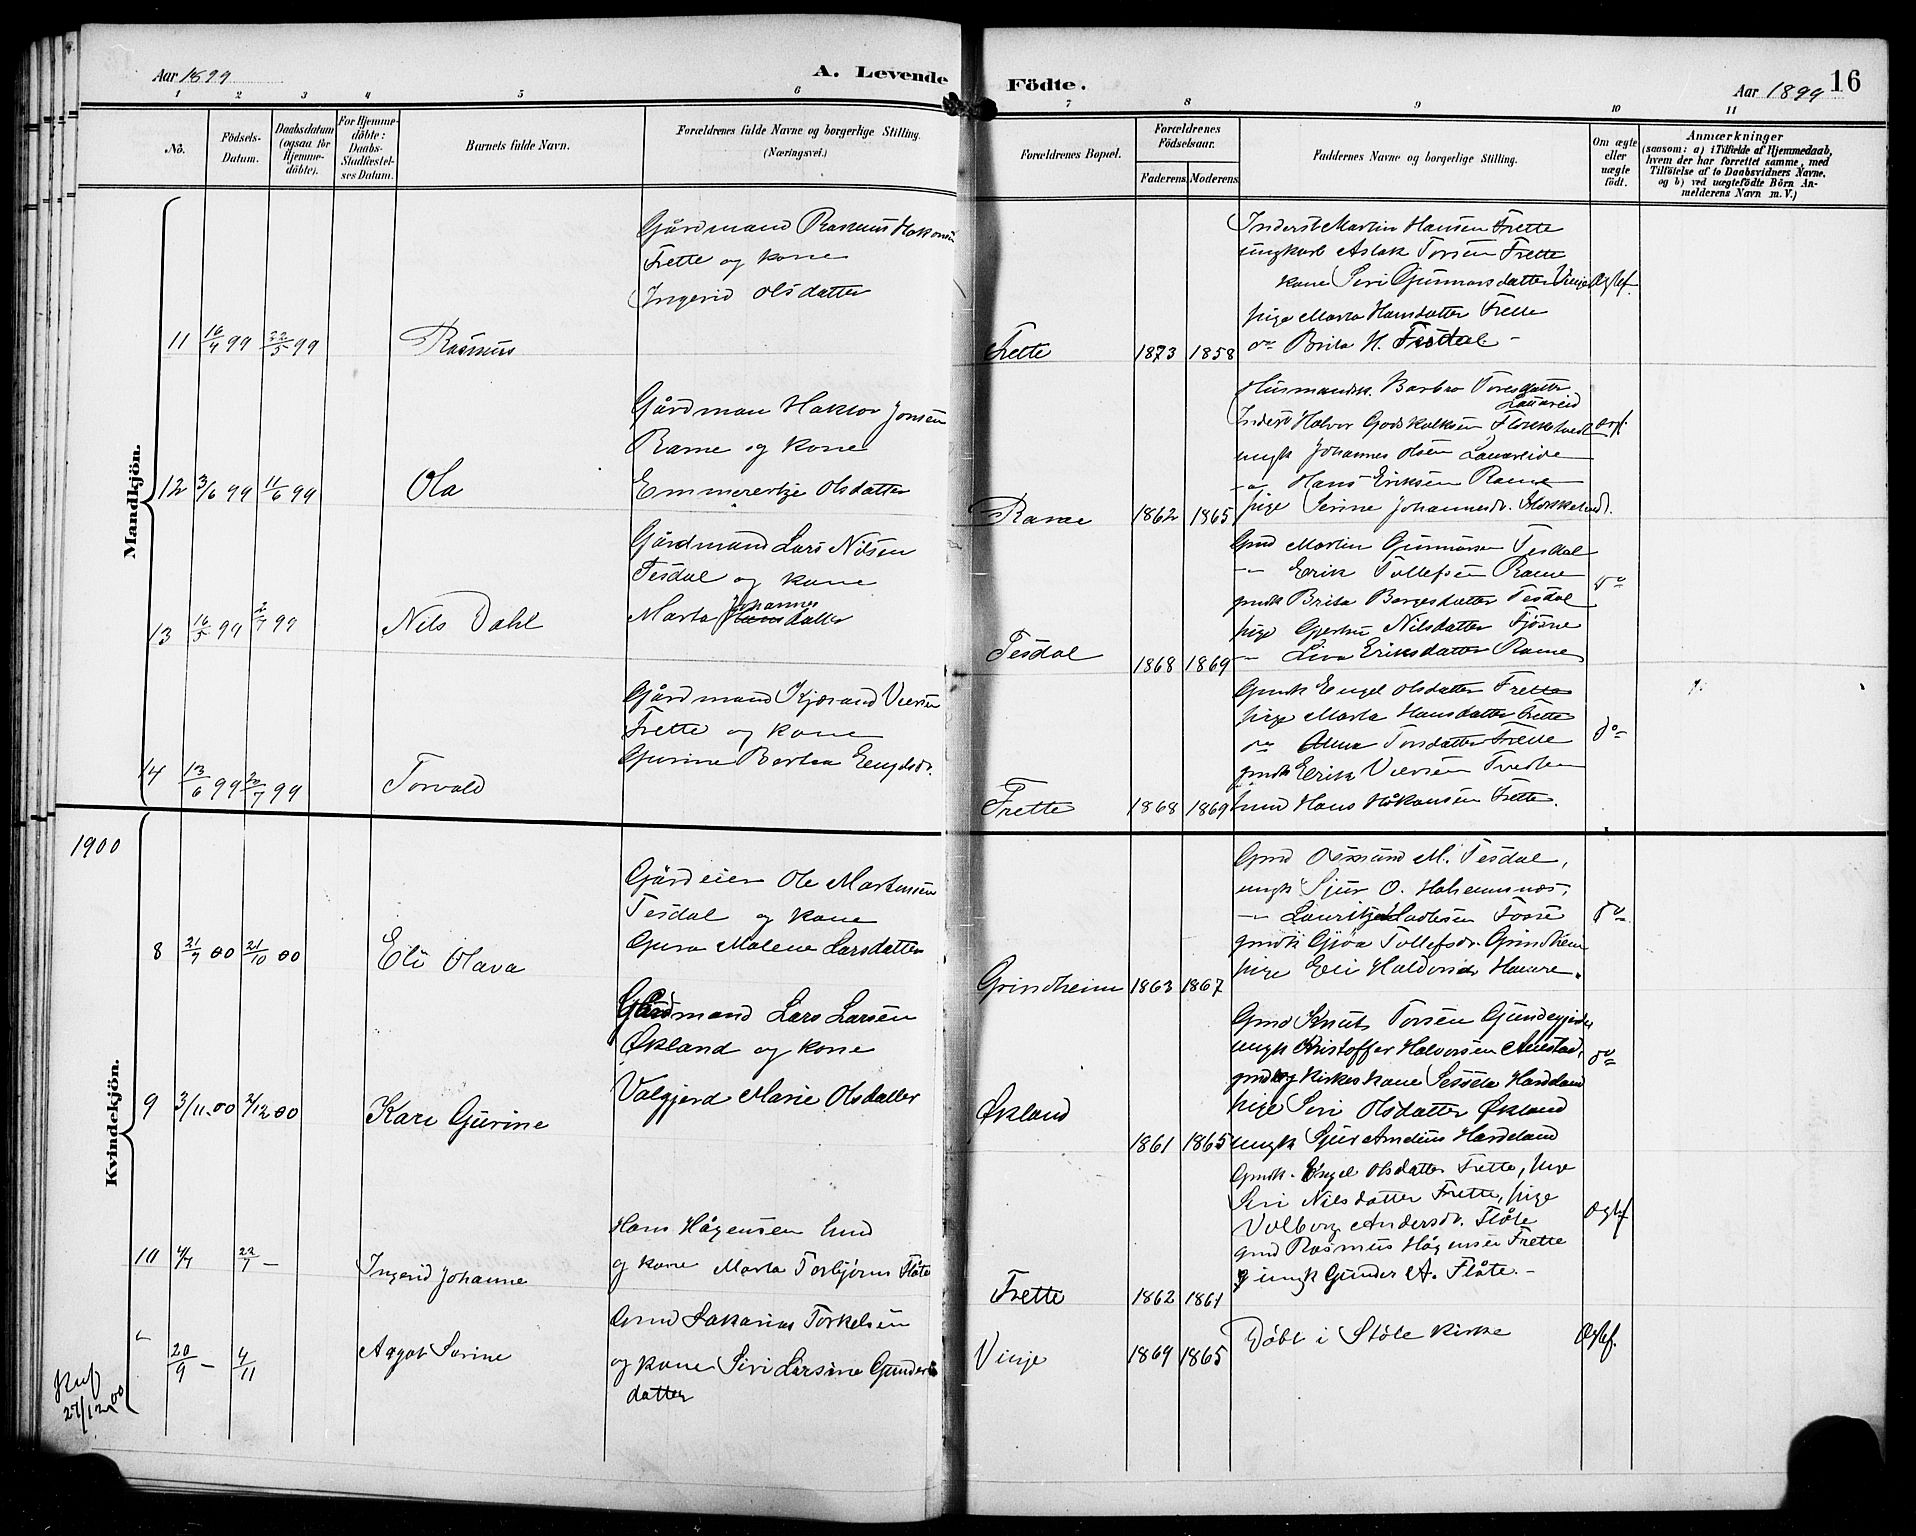 Aar 1899
A. Levende
Födte.
Aar 1899
16
1 2 3 4 5 6 7 8 9 10 11
No.
Födsels-
Datum.
Daabsdatum
(ogsaa for
Hjemme-
döbte).
For Hjemme-
döbte:
Daabs-
Stadfæstel-
ses Datum.
Barnets fulde Navn.
Forældrenes fulde Navne og borgerlige Stilling.
(Næringsvei.)
Forældrenes Bopæl.
Forældrenes
Födselsaar.
Faderens. Moderens.
Faddernes Navne og borgerlige Stilling.
Om ægte
eller
uægte
födt.
Anmærkninger
(saasom: a) i Tilfælde af Hjemmedaab,
hvem der har forrettet samme, med
Tilföielse af to Daabsvidners Navne,
og b) ved uægtefödte Börn An-
melderens Navn m. V.)
Mandkjön.
11 16/4 99 22/5 99
Rasmus
Gårdmand Rasmus Hakonsen
Frette og kone
Ingerid Olsdatter
Frette
1873 1858
Inderst Martin Hansen Frette
ungkarl Aslak Torsen Frette
kone Siri Gunnarsdatter Vinje
pige Marta Hansdatter Frette
do Brita H. Tesdal
Ægtef.
12 3/6 99 11/6 99
Ola
Gårdman Haktor Jonsen
Rame og kone
Emmerentze Olsdatter
Rame
1862 1865
Husmandsk. Barbro Toresdatter
Lauareid
Inderst Halvor Godskalksen
ungk Johannes Olsen Lauareide
" Hans Eriksen Rame
pige Serine Johannesd.
13 16/5 99 2/7 99
Nils Dahl
Gårdmand Lars Nilsen
Tesdal og kone
Johannes
Marta Hansdatter
Tesdal
1868 1869
Gmd Martin Gunnarsen Tesdal
" Erik Tollefsen Rame
gmdk Brita Børgesdatter Tesdal
pige Gjertru Nilsdatter Fjøsne
" Liva Eriksdatter Rame
do
14 13/6 99 20/7 99
Torvald
Gårdmand Kjærand Viersen
Frette og kone
Gurine Bertea Engelsdr.
Frette
1868 1869
Gmdk Engel Olsdatter Frette
pige Marta Hansdatter Frette
do Alma Torsdatter Frette
gmdk Erik Viersen
lund Hans Håkansen Frette.
do
1900
Kvindekjön.
8 21/9 00 21/10 00
Eli Olava
Gårdeier Ole Martensen
Tesdal og kone
Gura Malene Larsdatter
Grindheim
1863 1867
Gmd Osmund M. Tesdal,
ungk Sjur O.
" Lauritz Fosse
gmdk Gjøa Tollefsdr. Grindheim
pige Eli
do
9 3/11 00 2/12 00
Kari Gurine
Gårdmand Lars Larsen
Økland og kone
Valgjerd Marie Olsdatter
Økland
1861 1865
Gmd Knut Torsen
ungk Kristoffer Halvorsen
kone Sessela
pige Siri Olsdatter Økland
ungk Sjur
do
10 4/7 22/7 —
Ingerid Johanne
Hans Hågensen lund
og kone Marta Torbjørns Flåte
Frette
1862 1861
Gmdk. Engel Olsdatter Frette, pige
Siri Nilsdatter Frette, pige
Valborg Andersdr. Flåte
gmd Rasmus Hågensen Frette
og ungk Gunder A. Flåte.
Ægtef
20/9 — 4/11
Aagot Serine
Gmd Sakarias Torkelsen
og kone Siri Larsine Gunders
datter
Vinje
1869 1865
Døbt i Støle kirke
Ægtef.
27/12 00